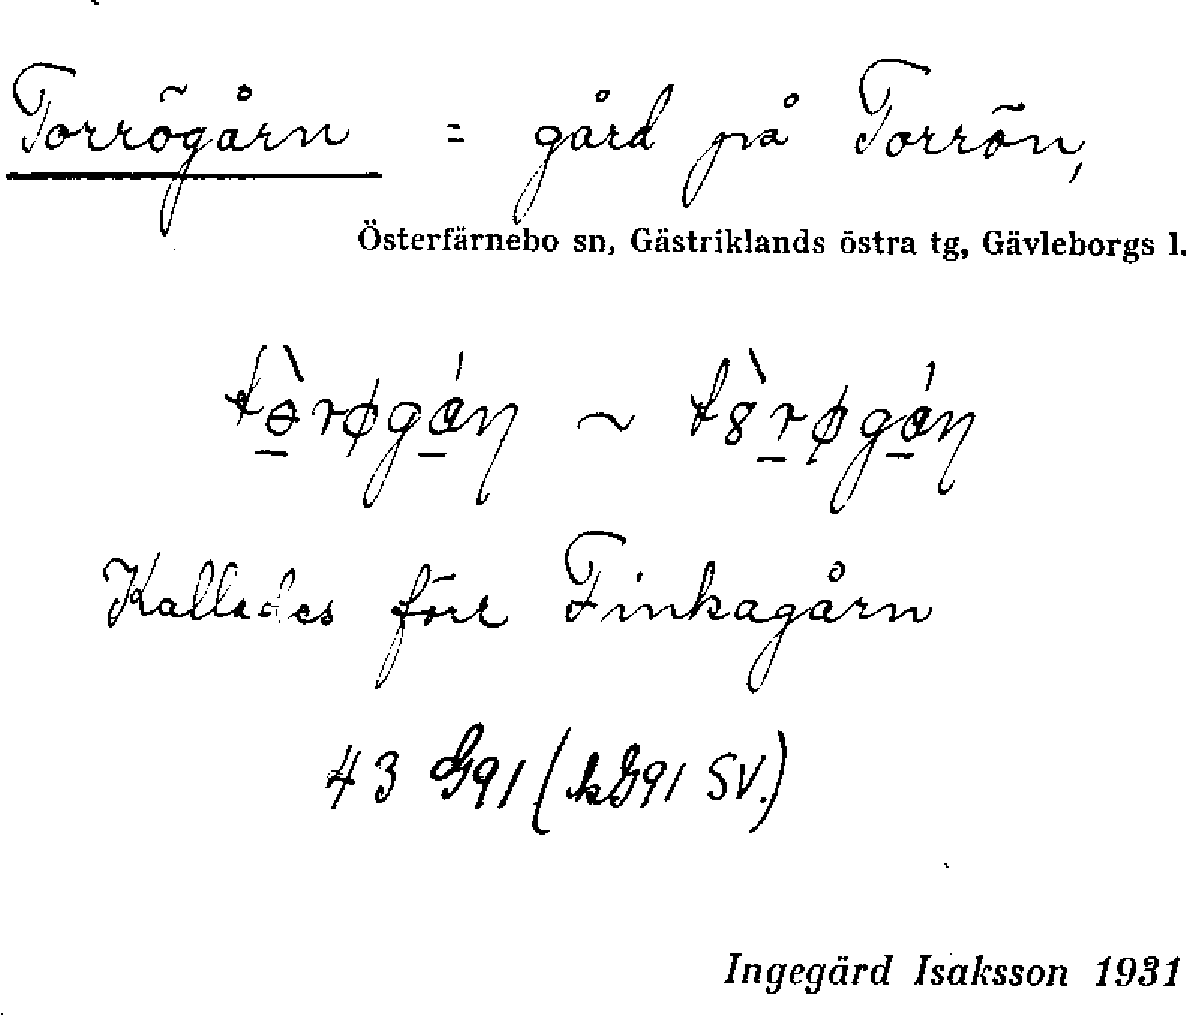 Torrögårn = gård på Torrön,
Österfärnebo sn, Gästriklands östra tg, Gävleborgs l.
Kallades förr Finkagårn
43 G91 (kG91 SV.)
Ingegärd Isaksson 1931